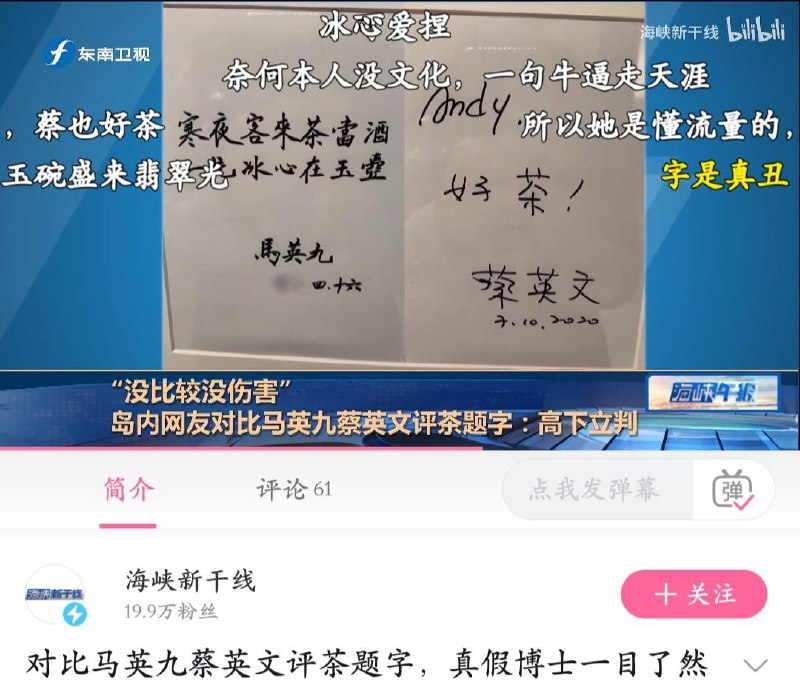 冰心爱捏
海峡新干线 bilibili
东南卫视
奈何本人没文化，一句牛逼走天涯
，蔡也好茶
寒夜客來茶當酒
冰心在玉壺
馬英九
四.十六
Andy
好茶！
蔡英文
7.10.2020
所以她是懂流量的，
玉碗盛来翡翠光
字是真丑
“没比较没伤害”
岛内网友对比马英九蔡英文评茶题字：高下立判
海峡午报
简介
评论 61
点我发弹幕
弹
海峡新干线
海峡新干线
19.9万粉丝
＋ 关注
对比马英九蔡英文评茶题字，真假博士一目了然